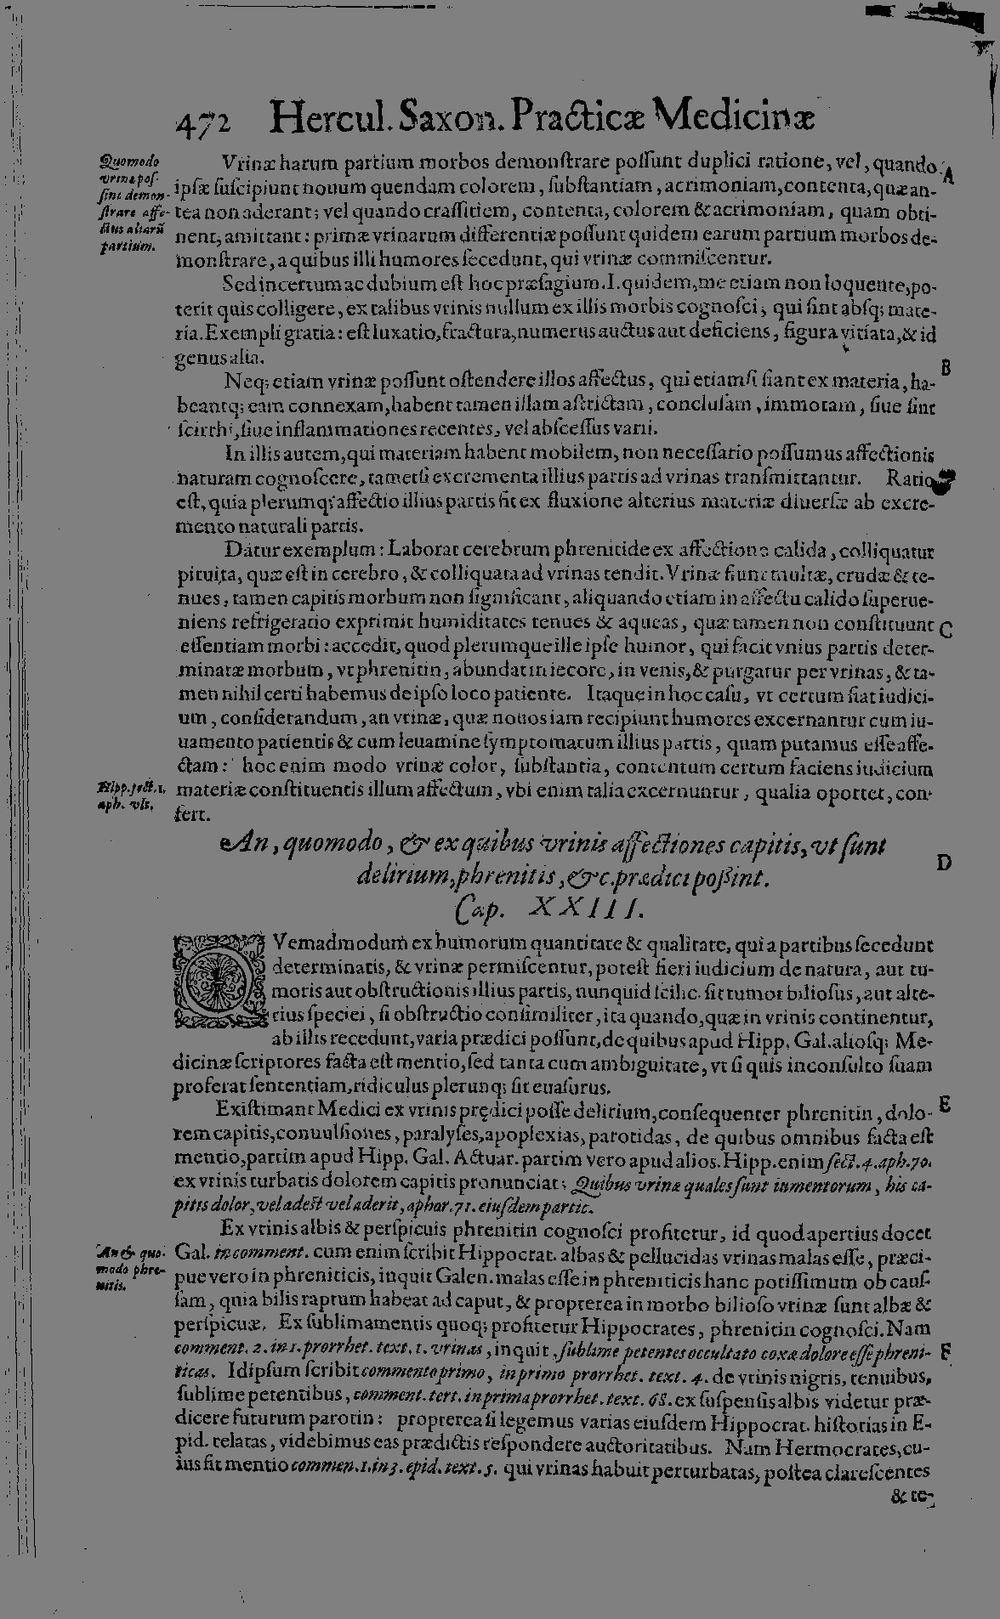 472 Hercul. Saxon. Practicæ Medicinæ
Quomodo
vrinæ pos-
sint demon-
strare affe-
ctus aliarū
partium.
Vrinæ harum partium morbos demonſtrare poſſunt duplici ratione, vel, quando A
ipſæ ſuſcipiunt nouum quendam colorem, ſubſtantiam, acrimoniam, contenta, quæ an-
tea non aderant; vel quando craſſitiem, contenta, colorem & acrimoniam, quam obti-
nent, amittant: primæ vrinarum differentiæ poſſunt quidem earum partium morbos de-
monſtrare, a quibus illi humores ſecedunt, qui vrinæ commiſcentur.
Sed incertum ac dubium eſt hoc præſagium. I. quidem, me etiam non loquente, po-
terit quis colligere, ex talibus vrinis nullum ex illis morbis cognoſci; qui ſint abſq; mate-
ria. Exempli gratia: eſt luxatio, fractura, numerus auctus aut deficiens, figura vitiata, & id
genus alia.
B
Neq; etiam vrinæ poſſunt oſtendere illos affectus, qui etiamſi fiant ex materia, ha-
beantq; eam connexam, habent tamen illam aſtrictam, concluſam, immotam, ſiue ſint
ſcirrhi, ſiue inflammationes recentes, vel abſceſſus varii.
In illis autem, qui materiam habent mobilem, non neceſſario poſſumus affectionis
naturam cognoſcere, tametſi excrementa illius partis ad vrinas tranſmittantur. Ratio
eſt, quia plerumq; affectio illius partis fit ex fluxione alterius materiæ diuerſæ ab excre-
mento naturali partis.
Datur exemplum: Laborat cerebrum phrenitide ex affectione calida, colliquatur
pituita, quæ eſt in cerebro, & colliquata ad vrinas tendit. Vrinæ fiunt multæ, crudæ & te-
nues, tamen capitis morbum non ſignificant, aliquando etiam in affectu calido ſuperue-
niens refrigeratio exprimit humiditates tenues & aqueas, quæ tamen non conſtituunt C
eſſentiam morbi: accedit, quod plerumque ille ipſe humor, qui facit vnius partis deter-
minatæ morbum, vt phrenitin, abundat in iecore, in venis, & purgatur per vrinas, & ta-
men nihil certi habemus de ipſo loco patiente. Itaque in hoc caſu, vt certum fiat iudici-
um, conſiderandum, an vrinæ, quæ nouos iam recipiunt humores excernantur cum iu-
uamento patientis & cum leuamine ſymptomatum illius partis, quam putamus eſſe affe-
ctam: hoc enim modo vrinæ color, ſubſtantia, contentum certum faciens iudicium
Hipp. ſect. 1.
aph. vlt.
materiæ conſtituentis illum affectum, vbi enim talia excernuntur, qualia oportet, con-
fert.
An, quomodo, & ex quibus vrinis affectiones capitis, vt ſunt
delirium, phrenitis, &c. prædici poßint. D
Cap. XXIII.
QVemadmodum ex humorum quantitate & qualitate, qui a partibus ſecedunt
determinatis, & vrinæ permiſcentur, poteſt fieri iudicium de natura, aut tu-
moris aut obſtructionis illius partis, nunquid ſcilic. ſit tumor bilioſus, aut alte-
rius ſpeciei, ſi obſtructio conſimiliter, ita quando, quæ in vrinis continentur,
ab illis recedunt, varia prædici poſſunt, de quibus apud Hipp. Gal. alioſq; Me-
dicinæ ſcriptores facta eſt mentio, ſed tanta cum ambiguitate, vt ſi quis inconſulto ſuam
proferat ſententiam, ridiculus plerunq; ſit euaſurus.
Exiſtimant Medici ex vrinis prędici poſſe delirium, conſequenter phrenitin, dolo- E
rem capitis, conuulſiones, paralyſes, apoplexias, parotidas, de quibus omnibus facta eſt
mentio, partim apud Hipp. Gal. Actuar. partim vero apud alios. Hipp. enim ſect. 4. aph. 70.
ex vrinis turbatis dolorem capitis pronunciat; Quibus vrinæ quales ſunt iumentorum, his ca-
pitis dolor, vel adeſt vel aderit, aphor. 71. eiuſdem partic.
Ex vrinis albis & perſpicuis phrenitin cognoſci profitetur, id quod apertius docet
An & quo-
modo phre-
nitis.
Gal. in comment. cum enim ſcribit Hippocrat. albas & pellucidas vrinas malas eſſe, præci-
pue vero in phreniticis, inquit Galen. malas eſſe in phreniticis hanc potiſſimum ob cauſ-
ſam, quia bilis raptum habeat ad caput, & propterea in morbo bilioſo vrinæ ſunt albæ &
perſpicuæ. Ex ſublimamentis quoq; profitetur Hippocrates, phrenitin cognoſci. Nam
comment. 2. in 1. prorrhet. text. 1. vrinas, inquit, ſublime petentes occultato coxæ dolore eſſe phreni- F
ticas. Idipſum ſcribit commento primo, in primo prorrhet. text. 4. de vrinis nigris, tenuibus,
ſublime petentibus, comment. tert. in prima prorrhet. text. 68. ex ſuſpenſis albis videtur præ-
dicere futurum parotin: propterea ſi legemus varias eiuſdem Hippocrat. hiſtorias in E-
pid. relatas, videbimus eas prædictis reſpondere auctoritatibus. Nam Hermocrates, cu-
ius fit mentio commen. 1. in 3. epid. text. 5. qui vrinas habuit perturbatas, poſtea clareſcentes
& te-